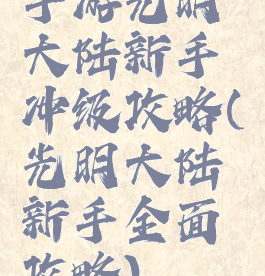 手游光明
大陆新手
冲级攻略(
光明大陆
新手全面
攻略)